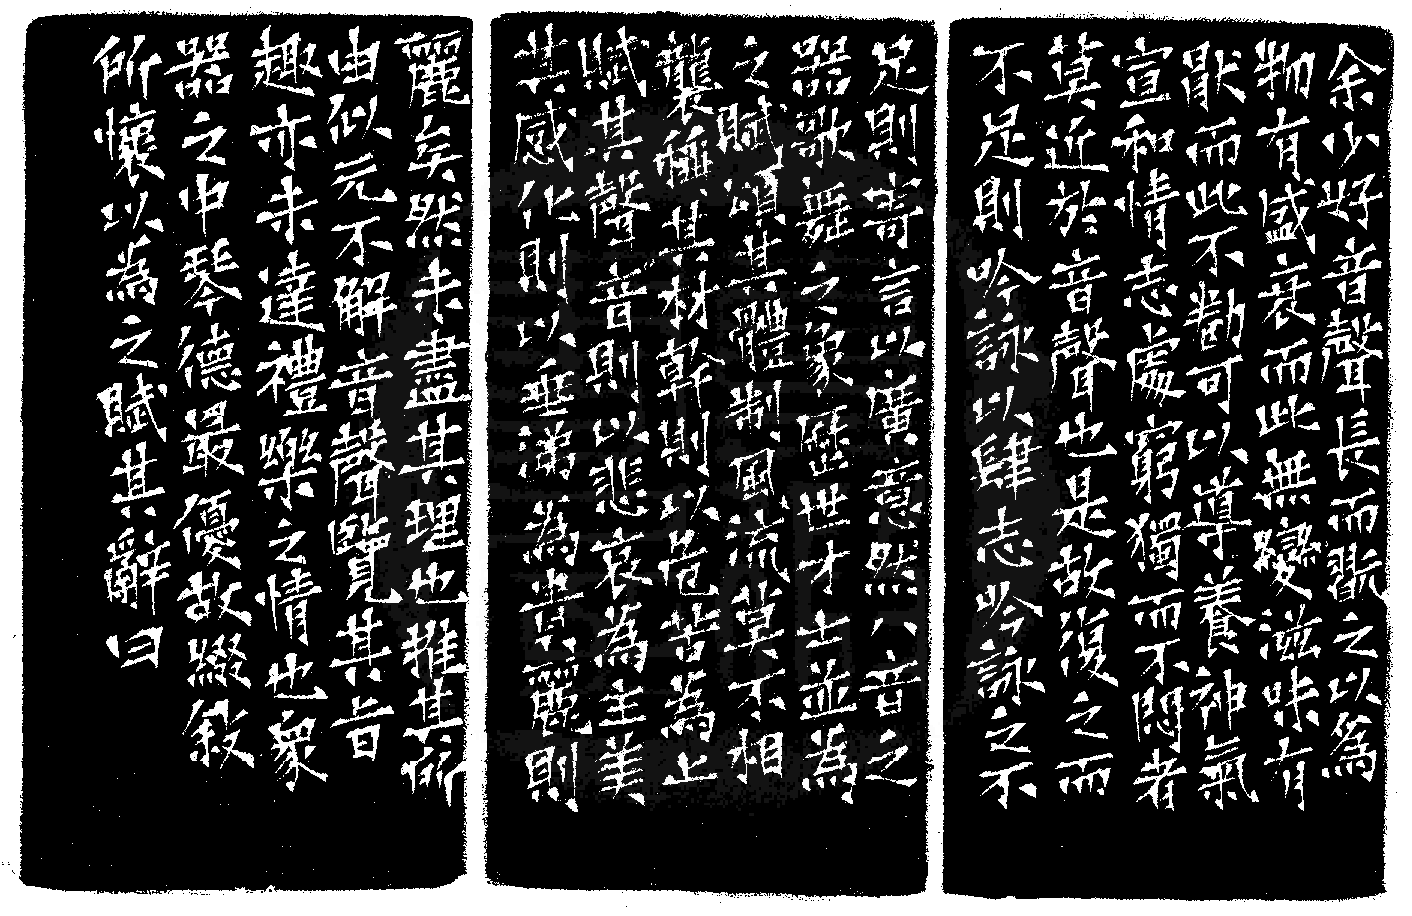 余少好音聲長而翫之以為
物有盛衰而此無變滋味有
猒而此不勌可以導養神氣
宣和情志處窮獨而不悶者
莫近於音聲也是故復之而
不足則吟詠以肆志吟詠之不
足則寄言以廣意然八音之
器歌舞之象歷世才士並為
之賦頌其體制風流莫不相
襲稱其材幹則以危苦為上
賦其聲音則以悲哀為主美
其感化則以垂涕為貴麗則
麗矣然未盡其理也推其所
由似元不解音聲覽其旨
趣亦未達禮樂之情也眾
器之中琴德最優故綴敘
所懷以為之賦其辭曰